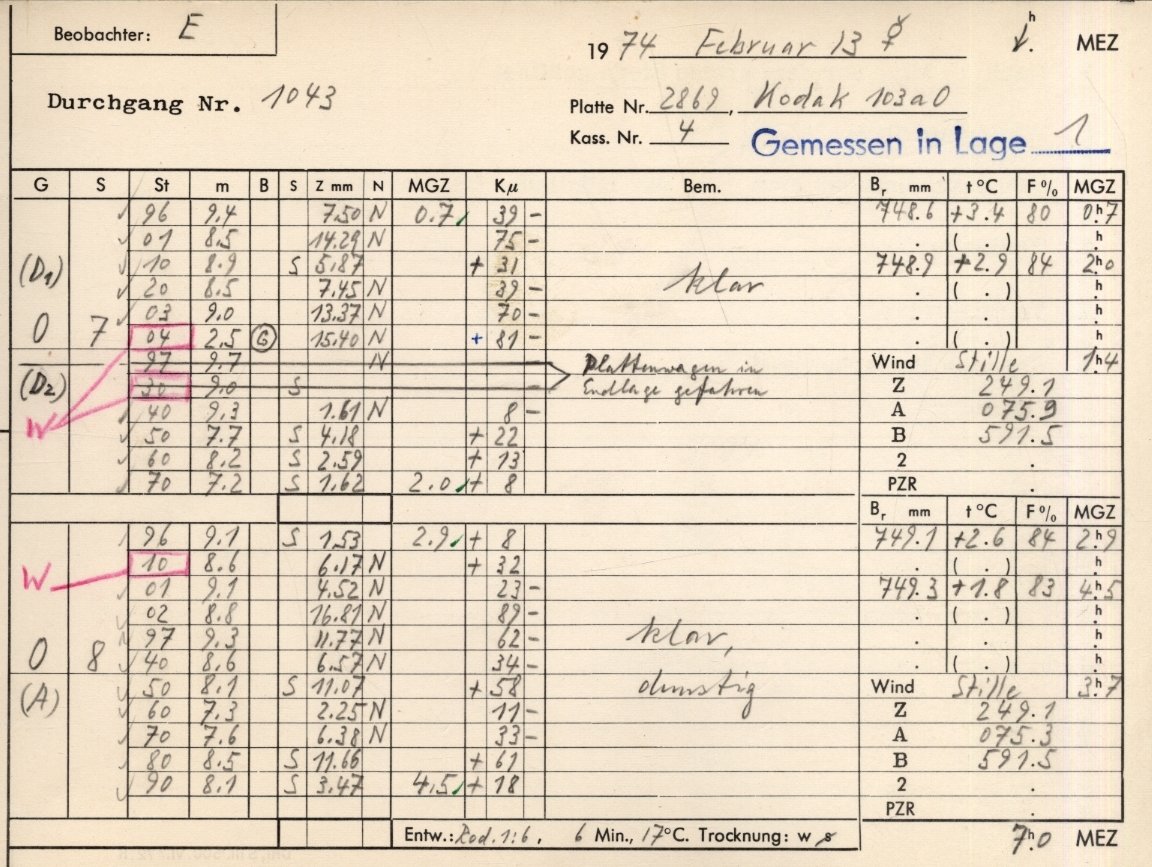 Beobachter: E
1974 Februar 13 ☿ h MEZ
Durchgang Nr. 1043
Platte Nr. 2869, Kodak 103a0
Kass. Nr. 4 Gemessen in Lage 1
G S St m B S Z mm N MGZ Kμ Bem. Br mm t °C F% MGZ
✓ 96 9.4 7.50 N 0.7 39 – 748.6 +3.4 80 0h7
✓ 01 8.5 14.29 N 75 – . ( . ) h
(D1) ✓ 10 8.9 S 5.87 + 31 klar 748.9 +2.9 84 2h0
✓ 20 8.5 7.45 N 39 – . ( . ) h
✓ 03 9.0 13.37 N 70 – . . h
0 7 04 2.5 G 15.40 N + 81 – . ( . ) h
97 9.7 N Plattenwagen in Wind Stille 1h4
(D2) 30 9.0 S Endlage gefahren Z 249.1
W ✓ 40 9.3 1.61 N 8 – A 075.9
✓ 50 7.7 S 4.18 + 22 B 591.5
✓ 60 8.2 S 2.59 + 13 2 .
✓ 70 7.2 S 1.62 2.0 + 8 PZR .
Br mm t °C F% MGZ
✓ 96 9.1 S 1.53 2.9 + 8 749.1 +2.6 84 2h9
W ✓ 10 8.6 6.17 N + 32 . ( . ) h
✓ 01 9.1 4.52 N 23 – 749.3 +1.8 83 4h5
✓ 02 8.8 16.81 N 89 – . ( . ) h
97 9.3 11.77 N 62 – klar, . . h
0 8 ✓ 40 8.6 6.57 N 34 – . ( . ) h
(A) ✓ 50 8.1 S 11.07 + 58 dunstig Wind Stille 3h7
✓ 60 7.3 2.25 N 11 – Z 249.1
✓ 70 7.6 6.38 N 33 – A 075.3
✓ 80 8.5 S 11.66 + 61 B 591.5
✓ 90 8.1 S 3.47 4.5 + 18 2 .
PZR .
Entw.: Rod. 1:6, 6 Min., 17°C. Trocknung: w s 7h0 MEZ